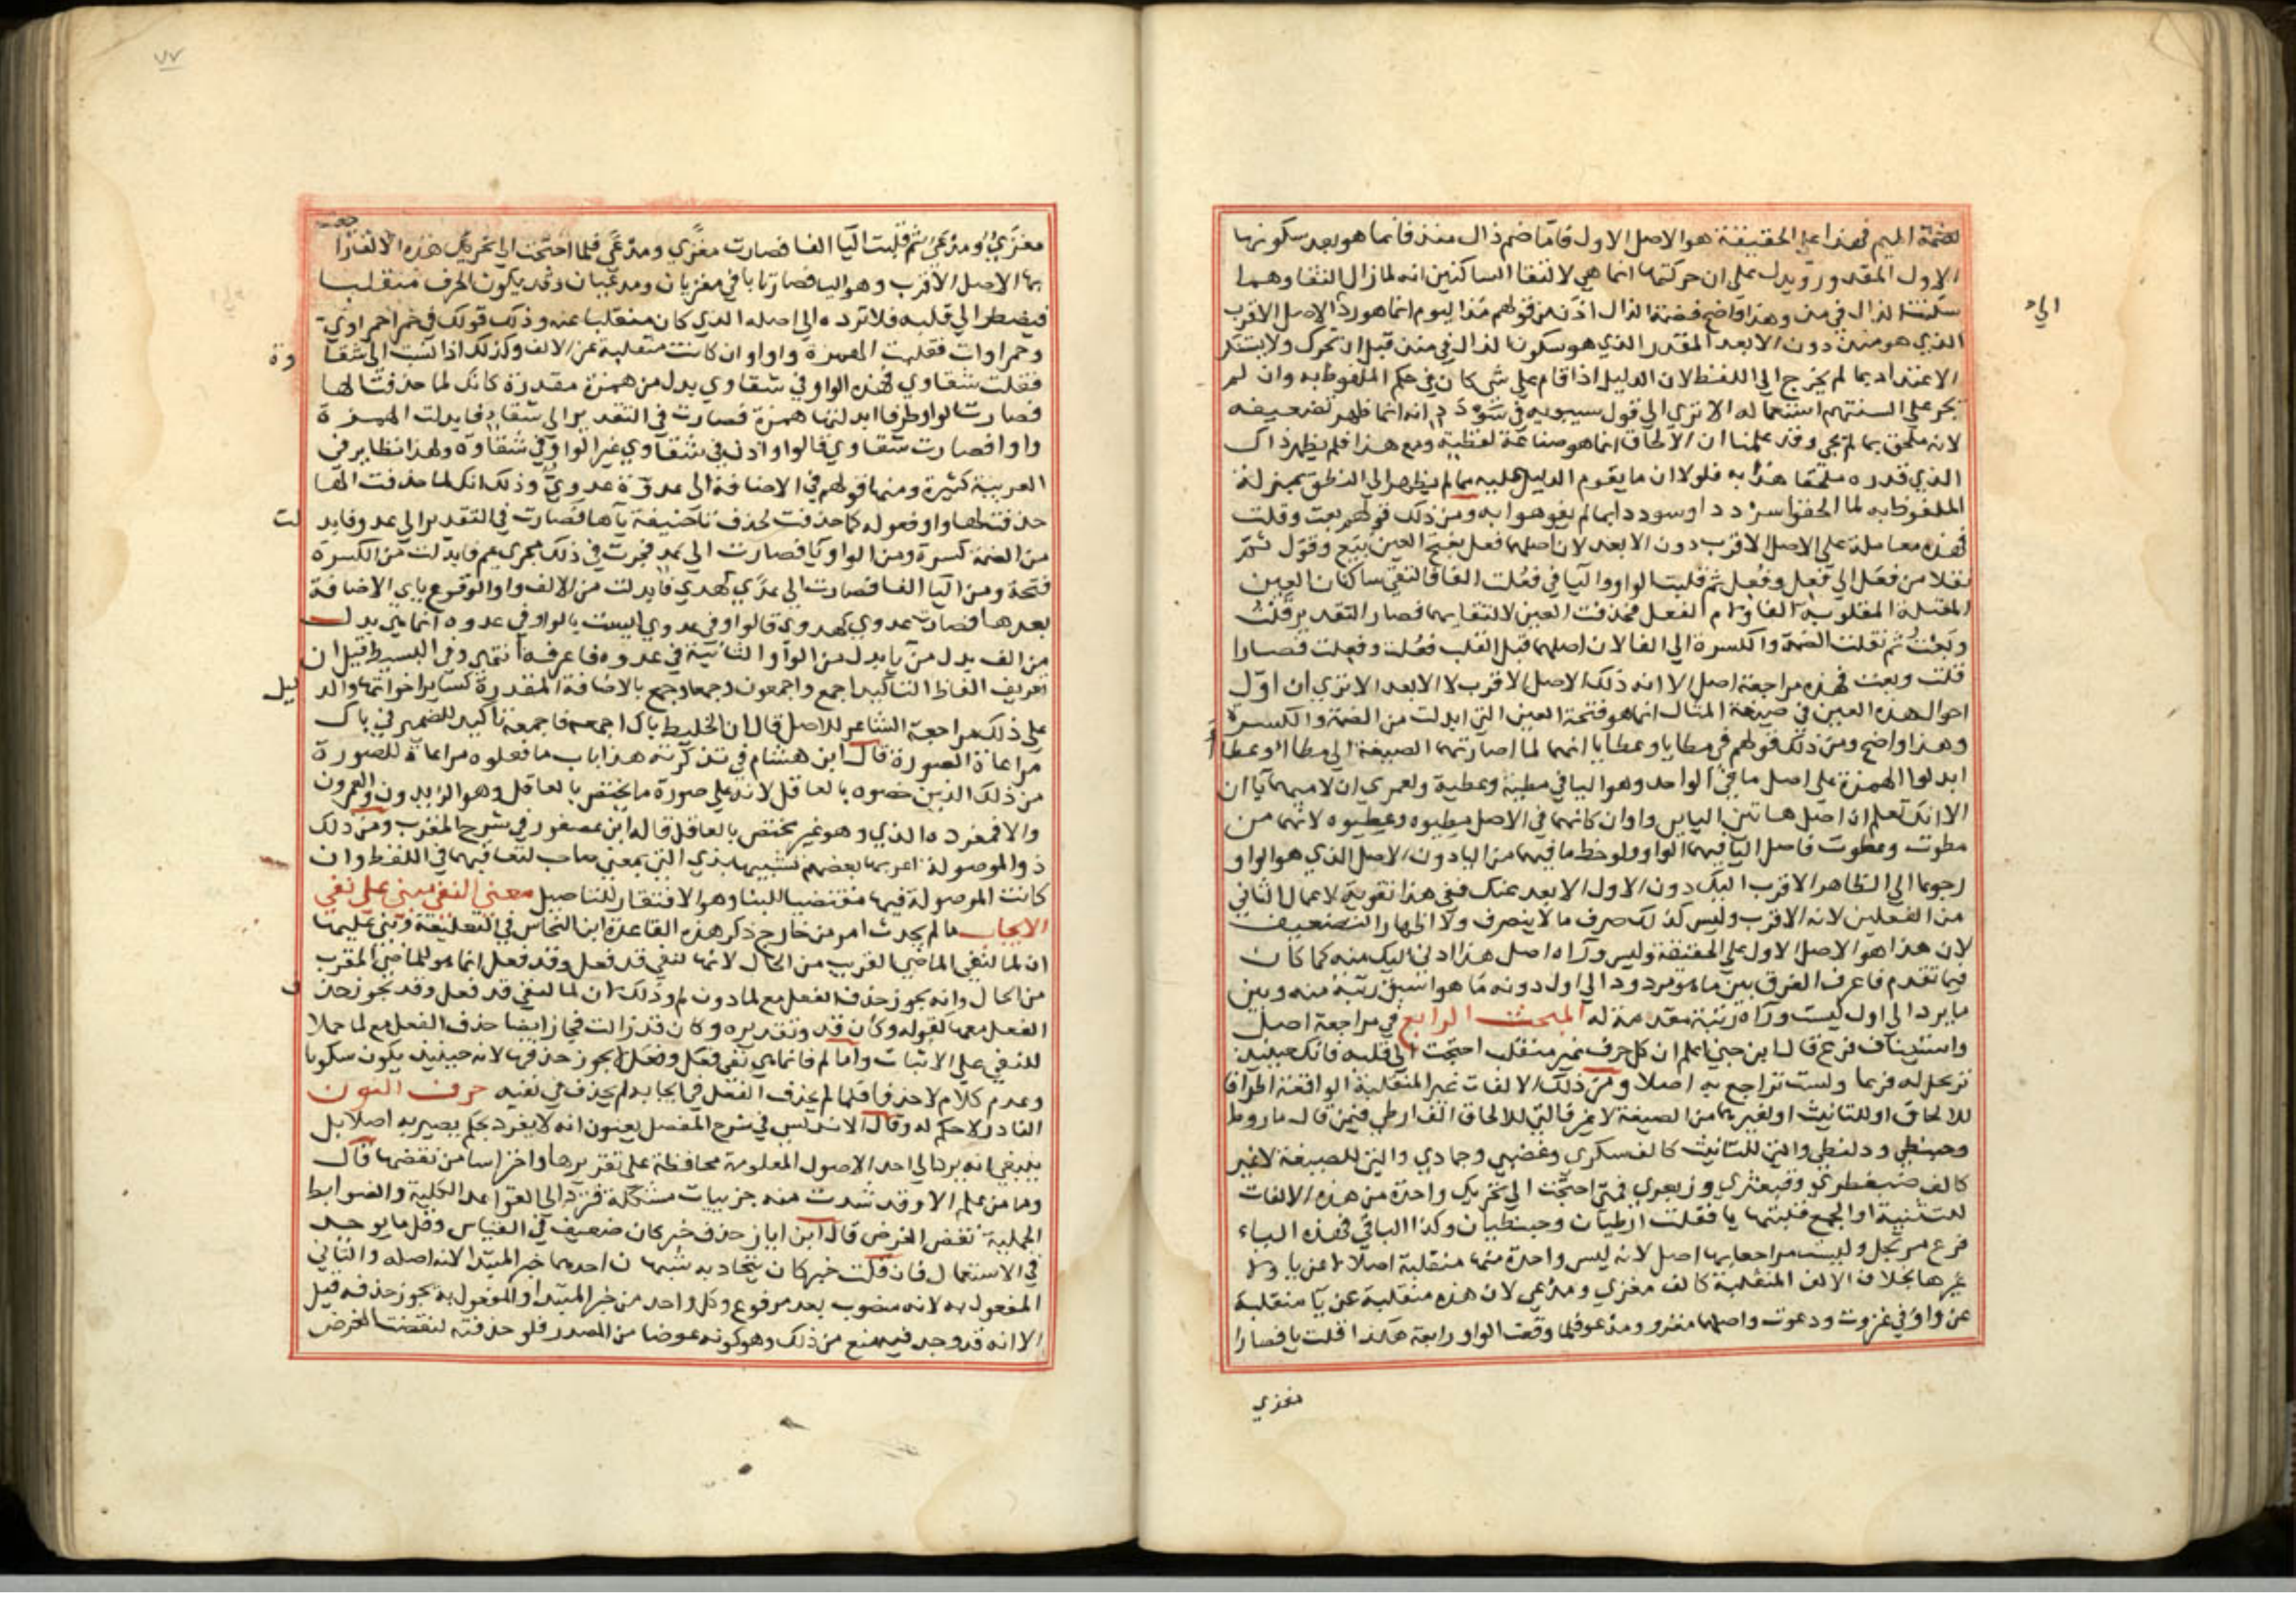 لضمة الميم فهذا على الحقيقة هو الاصل الاول فاما ضم ذال منذ فانما هو بعد سكونها
الاول المقدر ويدل على ان حركتها انما هي لالتقا الساكنين انه لما زال التقاوهما
سكنت الذال في مذ وهذا واضح فضمة الذال اذن من قولهم مذ اليوم انما هو رد الى الاصل الاقرب
الذي هو منذ دون الابعد المقدر الذي هو سكون الذال في منذ قبل ان تحرك ولا يستنكر
الاعتداد بما لم يخرج الى اللفظ لان الدليل اذا قام على شي كان في حكم الملفوظ به وان لم
يجر على السنتهم استعماله الا ترى الى قول سيبويه في سودد انه انما ظهر تضعيفه
لانه ملحق بما لم يجي وقد علمنا ان الالحاق انما هو صناعة لفظية ومع هذا فلم يظهر ذاك
الذي قدره ملحقا هذا به فلولا ان ما يقوم الدليل عليه مما لم يظهر الى النطق بمنزلة
الملفوظ به لما الحقوا سرددا وسوددا بما لم يفوهوا به ومن ذلك قولهم بعت وقلت
فهذه معاملة على الاصل الاقرب دون الابعد لان اصلهما فعل بفتح العين بيع وقول ثم
نقلا من فعل الى فعل وفعل ثم قلبت الواو واليا في فعلت الفا فالتقى ساكنان العين
المعتلة المقلوبة الفا ولام الفعل فحذفت العين لالتقايهما فصار التقدير قلت
وبعت ثم نقلت الضمة والكسرة الى الفا لان اصلهما قبل القلب فعلت وفعلت فصارا
قلت وبعت فهذه مراجعة اصل الا انه ذلك الاصل الاقرب لا الابعد الا ترى ان اول
احوال هذه العين في صيغة المثال انما هو فتحة العين التي ابدلت منها الضمة والكسرة
وهذا واضح ومن ذلك قولهم في مطايا وعطايا انهما لما اصارتهما الصيغة الى مطاا وعطاا
ابدلوا الهمزة على اصل ما في الواحد وهو اليا في مطية وعطية ولعمري ان لاميهما يا ان
الا انك تعلم ان اصل هاتين اليايين واوان كانهما في الاصل مطيوه وعطيوه لانهما من
مطوت وعطوت فاصل اليا فيهما الواو ولوحظ ما فيهما من اليا دون الاصل الذي هو الواو
رجوعا الى الظاهر الاقرب اليك دون الاول الابعد عنك ففي هذا تقوية لاعمال الثاني
من الفعلين لانه الاقرب وليس كذلك صرف ما لا ينصرف ولا اظهار التضعيف
لان هذا هو الاصل الاول على الحقيقة وليس وراه اصل هذا ادنى اليك منه كما كان
فيما تقدم فاعرف الفرق بين ما هو مردود الى اول دونه ما هو اسبق رتبة منه وبين
ما يرد الى اول ليست وراه رتبة متقدمة له المبحث الرابع في مراجعة اصل
واستيناف فرع قال ابن جني اعلم ان كل حرف غير منقلب احتجت الى قلبه فانك حينيذ
ترتجل له فرعا ولست تراجع به اصلا ومن ذلك الالفات غير المنقلبة الواقعة اطرافا
للالحاق او للتانيث او لغيرهما من الصيغة لا غير فالتي للالحاق الف ارطى فيمن قال ماروط
وحبنطى ودلنظى والتي للتانيث كالف سكرى وغضبى وجمادى والتي للصيغة لا غير
كالف ضبغطرى وقبعثرى وزبعرى فمتى احتجت الى تحريك واحدة من هذه الالفات
للتثنية او الجمع قلبتها يا فقلت ارطيان وحبنطيان وكذا الباقي فهذه الياء
فرع مرتجل وليست مراجعا بها اصل لانه ليس واحدة منها منقلبة اصلا لا عن يا ولا
غيرها بخلاف الالف المنقلبة كالف مغزى ومدعى لان هذه منقلبة عن يا منقلبة
عن واو في غزوت ودعوت واصلهما مغزو ومدعو فلما وقعت الواو رابعة هكذا قلبت يا فصارا
مغزي
مغزي ومدعي ثم قلبت اليا الفا فصارت مغزى ومدعى فلما احتجت الى تحريك هذه الالف راجعت
بها الاصل الاقرب وهو اليا فصارتا يا في مغزيان ومدعيان وقد يكون الحرف منقلبا
فيضطر الى قلبه فلا ترده الى اصله الذي كان منقلبا عنه وذلك قولك في حمرا حمراوي
وحمراوات فقلبت الهمزة واوا وان كانت منقلبة عن الالف وكذلك اذا نسبت الى شقاوة
فقلت شقاوي فهذه الواو في شقاوي بدل من همزة مقدرة كانك لما حذفت الها
فصارت الواو طرفا ابدلتها همزة فصارت في التقدير الى شقاء فابدلت الهمزة
واوا فصارت شقاوي فالواو اذن في شقاوي غير الواو في شقاوة ولهذا نظاير في
العربية كثيرة ومنها قولهم في الاضافة الى عدوة عدوي وذلك انك لما حذفت الها
حذفت لها واو فعوله كما حذفت لحذف تا حنيفة ياها فصارت في التقدير الى عدو فابدلت
من الضمة كسرة ومن الواو يا فصارت الى عد فجرت في ذلك مجرى عم فابدلت من الكسرة
فتحة ومن اليا الفا فصارت الى عدى كهدى فابدلت من الالف واوا لوقوع ياي الاضافة
بعدها فصارت عدوي كهدوي فالواو في عدوي ليست بالواو في عدوه انما هي بدل
من الف بدل من يا بدل من الواو الثانية في عدوه فاعرفه انتهى وفي البسيط قيل ان
تعريف الفاظ التاكيد اجمع واجمعون وجمعا وجمع بالاضافة المقدرة كساير اخواتها والدليل
على ذلك مراجعة الشاعر للاصل قال ان الخليط باك اجمعه فاجمعه تاكيد للضمير في باك
مراعاة الصورة قال ابن هشام في تذكرته هذا باب ما فعلوه مراعاة للصورة
من ذلك الذين خصوه بالعاقل لانه على صورة ما يختص بالعاقل وهو الزيدون والعمرون
والا فمفرده الذي وهو غير مختص بالعاقل قاله ابن عصفور في شرح المقرب ومن ذلك
ذو الموصولة اعربها بعضهم تشبيها بذي التي بمعنى صاحب لتعاقبهما في اللفظ وان
كانت الموصولة فيها مقتضيا للبنا وهو الافتقار للتاصيل معنى النفي مبني على نفي
الايجاب ما لم يحدث امر من خارج ذكر هذه القاعدة ابن النحاس في التعليقة وبنى عليها
ان لما لنفي الماضي القريب من الحال لانها لنفي قد فعل وقد فعل انما هو للماضي المقرب
من الحال وانه يجوز حذف الفعل مع لما دون لم وذلك ان لما لنفي قد فعل وقد يجوز حذف
الفعل معها كقوله وكان قد وتقديره وكان قد زالت فجاز ايضا حذف الفعل مع لما حملا
للنفي على الاثبات واما لم فانما هي نفي فعل وفعل لا يجوز حذفها لانه حينيذ يكون سكوتا
وعدم كلام لا حذفا فلما لم يحذف الفعل في ايجابه لم يحذف في نفيه حرف النون
النادر لا حكم له وقال الاندلسي في شرح المفصل يعنون انه لا يفرد بحكم يصير به اصلا بل
ينبغي انه يرد الى احد الاصول المعلومة محافظة على تقريرها واحتراسا من نقضها قال
وما من علم الا وقد شذت منه جزييات مشكلة فترد الى القواعد الكلية والضوابط
الجملية نقض الغرض قال ابن اياز حذف خبر كان ضعيف في القياس وقل ما يوجد
في الاستعمال فان قلت خبر كان يتجاذبه شبهان احدهما خبر المبتدا لانه اصله والثاني
المفعول به لانه منصوب بعد مرفوع وكل واحد من خبر المبتدا والمفعول به يجوز حذفه قيل
الا انه قد وجد فيه منع من ذلك وهو كونه عوضا من المصدر فلو حذفته لنقضت الغرض